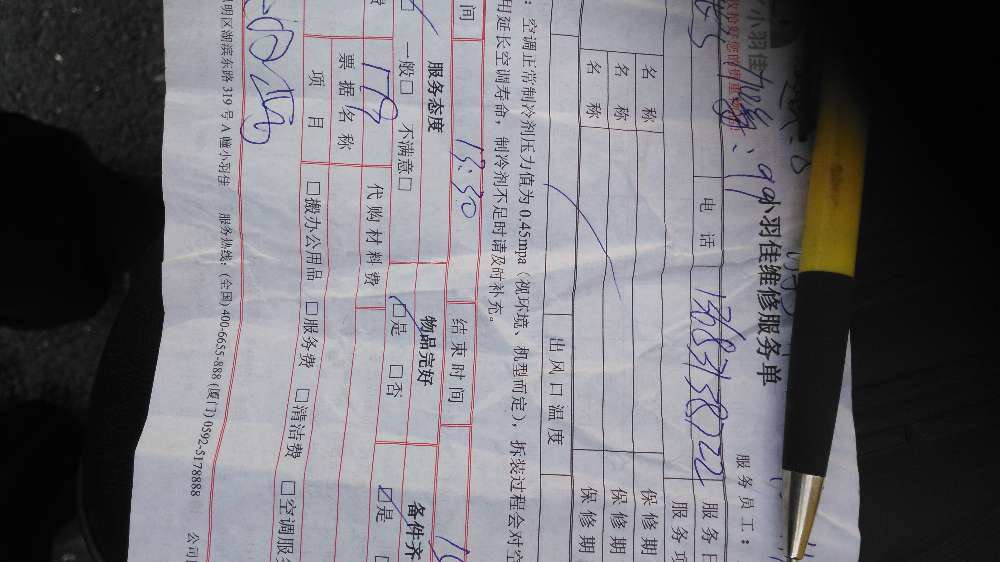 小羽佳
小羽佳维修服务单
服务员工：
电 话 13683138722 服务日
服务项
名 称 保修期
名 称 保修期
名 称 保修期
出风口温度
：空调正常制冷剂压力值为 0.45mpa（视环境、机型而定），拆装过程会对空
用延长空调寿命，制冷剂不足时请及时补充。
间 13:30 结束时间
服务态度 物品完好 备件齐
一般□ 不满意□ □是 □否 ☑是
费 178 代购材料费
票据名称
项 目 □搬办公用品 □服务费 □清洁费 □空调服
明区湖滨东路 319 号 A 幢小羽佳 服务热线：(全国) 400-6655-888 (厦门) 0592-5178888 公司